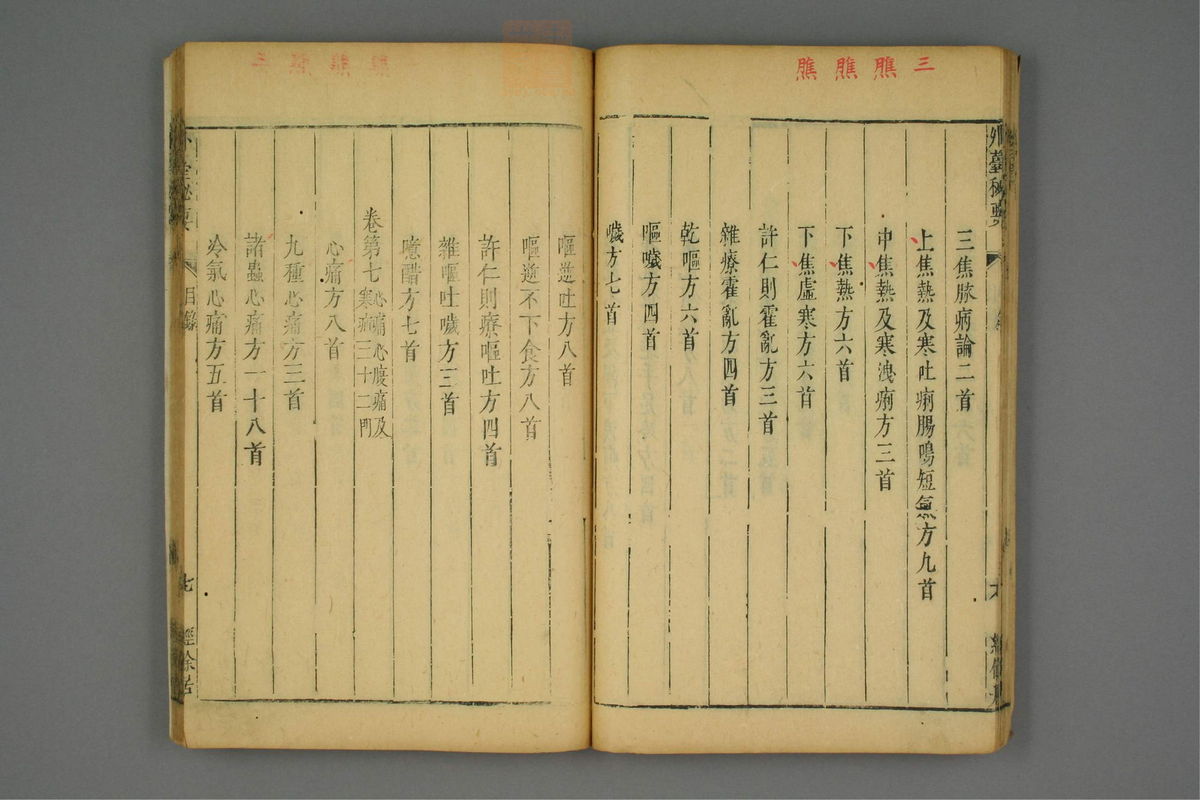 三
膲
膲
膲
三焦脉病論二首
上焦熱及寒吐痢腸鳴短氣方九首
中焦熱及寒洩痢方三首
下焦熱方六首
下焦虛寒方六首
許仁則霍亂方三首
雜療霍亂方四首
乾嘔方六首
嘔噦方四首
噦方七首
嘔逆吐方八首
嘔逆不下食方八首
許仁則療嘔吐方四首
雜嘔吐噦方三首
噫醋方七首
卷第七 心痛心腹痛及
寒疝三十二門
心痛方八首
九種心痛方三首
諸蟲心痛方一十八首
冷氣心痛方五首
外臺秘要
目錄
七
經餘居